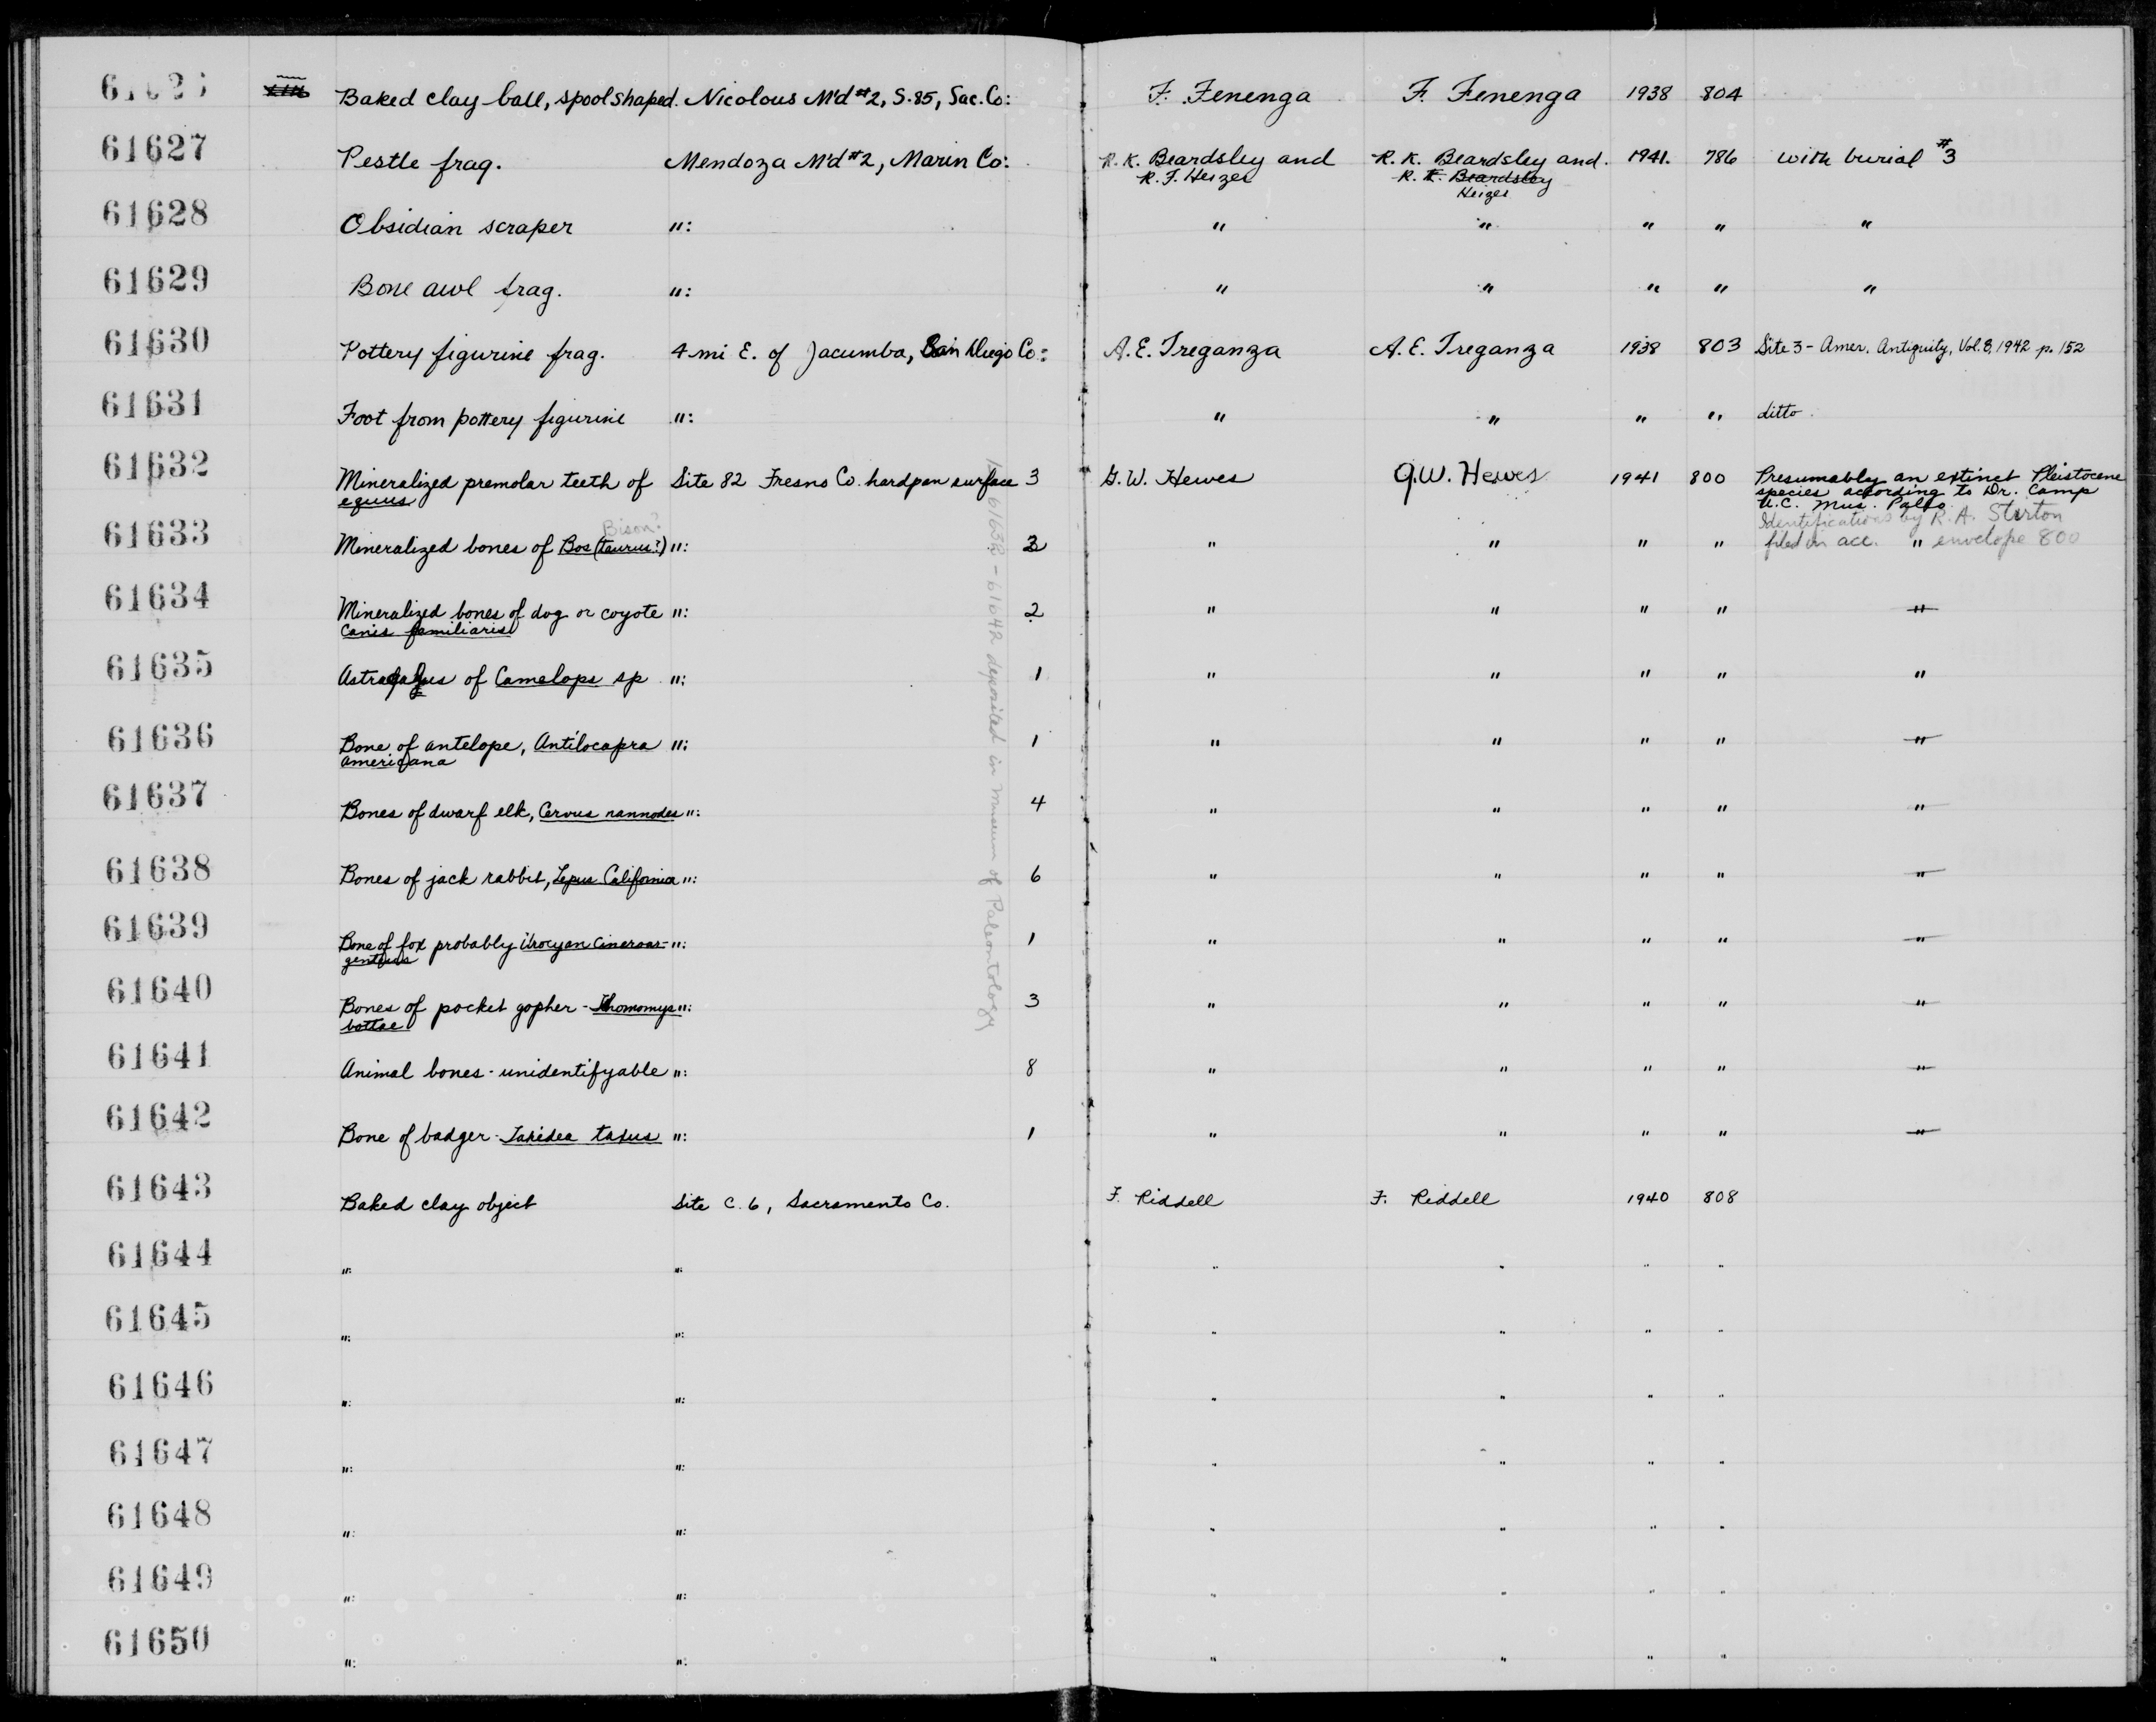 Baked clay ball, spool shaped. Nicolous M'd #2, S.85, Sac. Co: F. Fenenga F. Fenenga 1938 804
61627 Pestle frag. Mendoza M'd #2, Marin Co: R. K. Beardsley and R. K. Beardsley and. 1941. 786 with burial #3
R. F. Heizer R. K. Beardsley
Heizer
61628 Obsidian scraper ": " " " " "
61629 Bone awl frag. ": " " " " "
61630 Pottery figurine frag. 4 mi E. of Jacumba, San Diego Co: A. E. Treganza A. E. Treganza 1938 803 Site 3 - Amer. Antiquity, Vol. 8, 1942 p. 152
61631 Foot from pottery figurine ": " " " " ditto.
61632 Mineralized premolar teeth of Site 82 Fresno Co. hardpan surface 3 G. W. Hewes G.W. Hewes 1941 800 Presumably an extinct Pleistocene
equus species according to Dr. Camp
U.C. Mus. Paleo.
Bison? Identifications by R. A. Stirton
61633 Mineralized bones of Bos (taurus?) ": 3 " " " " filed in acc. " envelope 800
61634 Mineralized bones of dog or coyote ": 2 " " " " "
Canis familiaris
61635 Astragalus of Camelops sp ": 1 " " " " "
61636 Bone of antelope, Antilocapra ": 1 " " " " "
americana
61637 Bones of dwarf elk, Cervus nannodes ": 4 " " " " "
61638 Bones of jack rabbit, Lepus California ": 6 " " " " "
61639 Bone of fox probably Urocyon cineroar- ": 1 " " " " "
61640 Bones of pocket gopher - Thomomys ": 3 " " " " "
bottae
61641 Animal bones - unidentifyable ": 8 " " " " "
61642 Bone of badger - Taxidea taxus ": 1 " " " " "
61632 - 61642 deposited in Museum of Paleontology
61643 Baked clay object Site C. 6, Sacramento Co. F. Riddell F. Riddell 1940 808
61644 ": ": " " " "
61645 ": ": " " " "
61646 ": ": " " " "
61647 ": ": " " " "
61648 ": ": " " " "
61649 ": ": " " " "
61650 ": ": " " " "